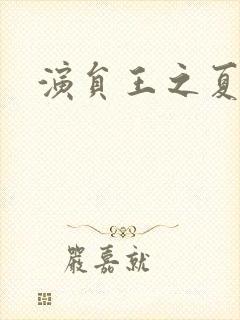 演員王之夏
嚴嘉就